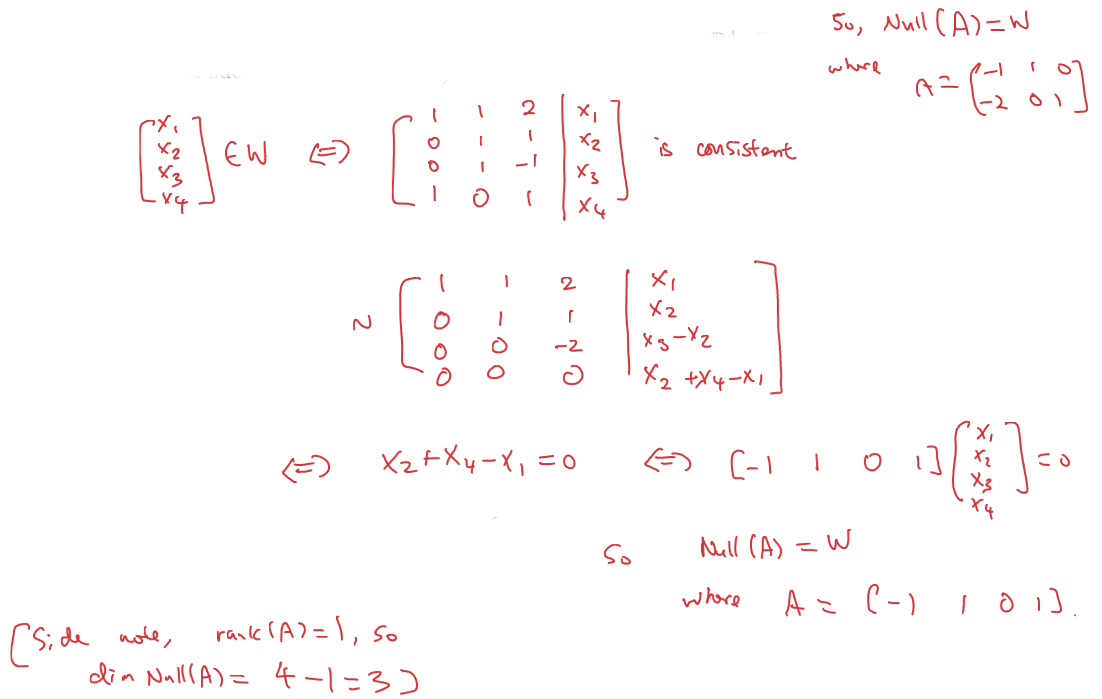 So, Null(A)=W
where A = [-1 1 0
-2 0 1]
[x₁
x₂
x₃
x₄] ∈ W ⟺ [1 1 2 | x₁
0 1 1 | x₂
0 1 -1 | x₃
1 0 1 | x₄] is consistent
~ [1 1 2 | x₁
0 1 1 | x₂
0 0 -2 | x₃-x₂
0 0 0 | x₂+x₄-x₁]
⟺ x₂+x₄-x₁=0 ⟺ [-1 1 0 1] [x₁
x₂
x₃
x₄] = 0
So Null(A) = W
where A = [-1 1 0 1].
[Side note, rank(A)=1, so
dim Null(A) = 4-1=3]